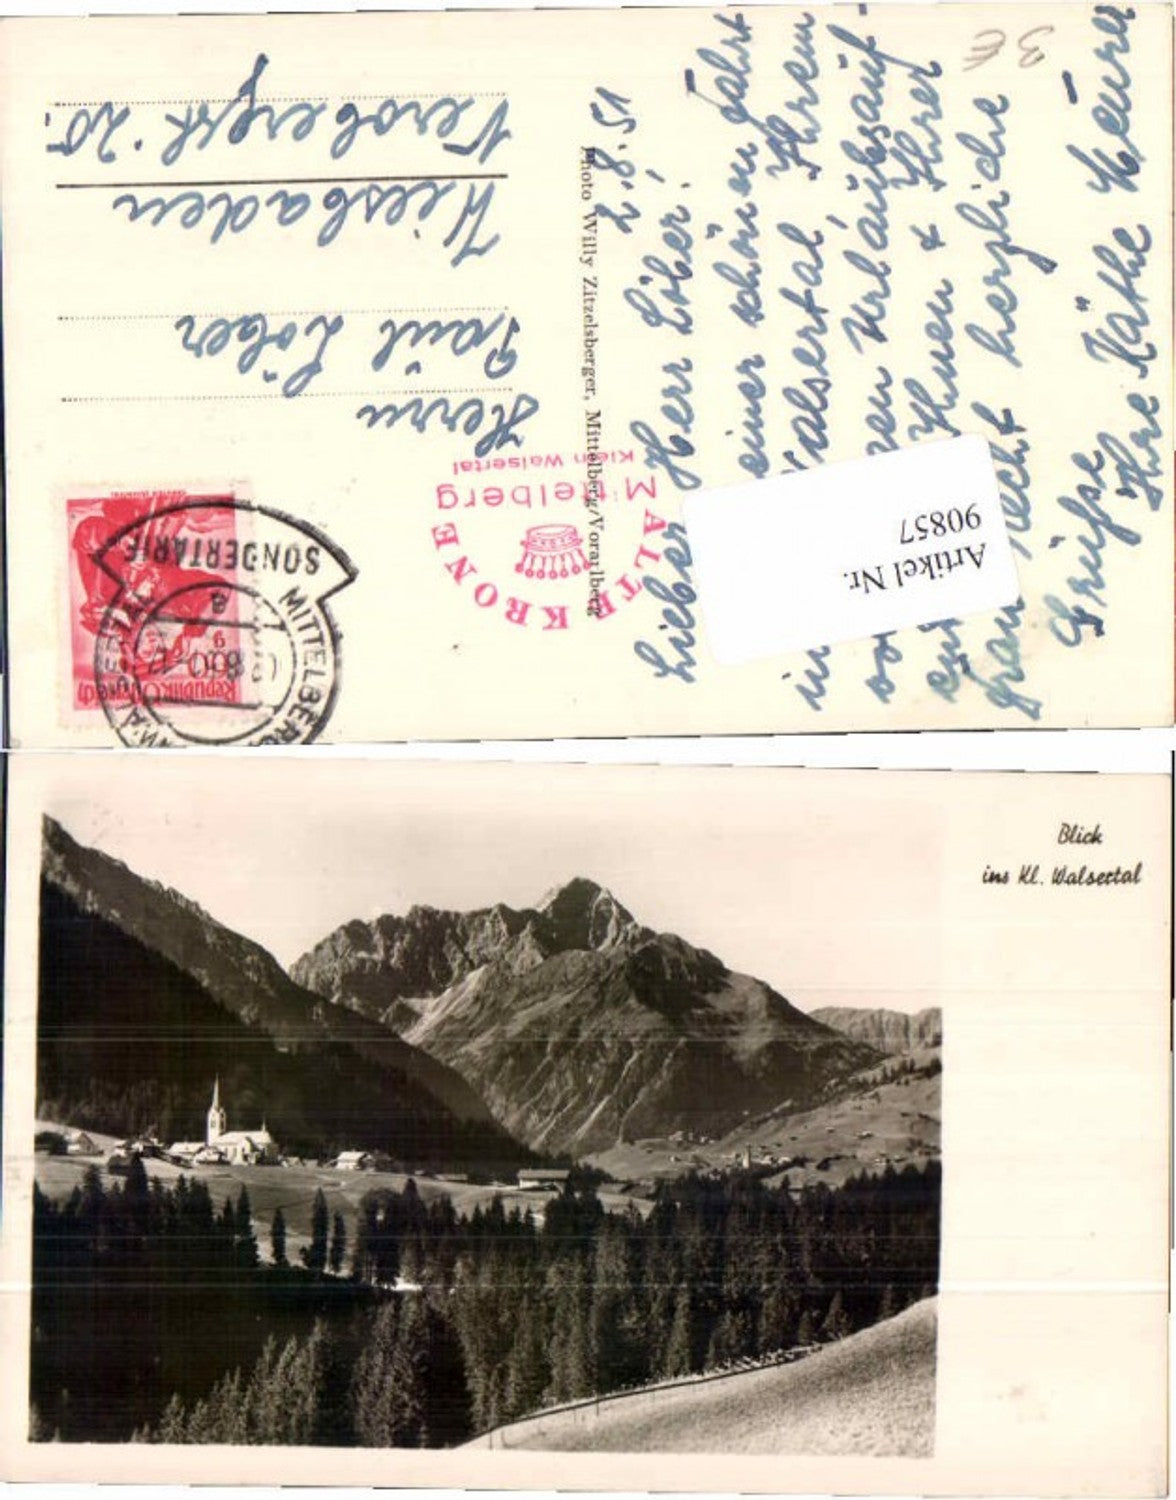 2.8.51
Lieber Herr Löber!
einer schönen Fahrt
in Walsertal, Ihrem
Urlaubsauf-
Ihnen & Ihrer
Frau recht herzliche
Grüße
Ihre Käthe
Photo Willy Zitzelsberger, Mittelberg/Vorarlberg
ALTE KRONE
Mittelberg
Klein Walsertal
Herrn
Paul Löber
Wiesbaden
20.
Republik Österreich
60 g
SONDERTARIF
MITTELBERG
Artikel Nr.
90857
Blick
ins Kl. Walsertal